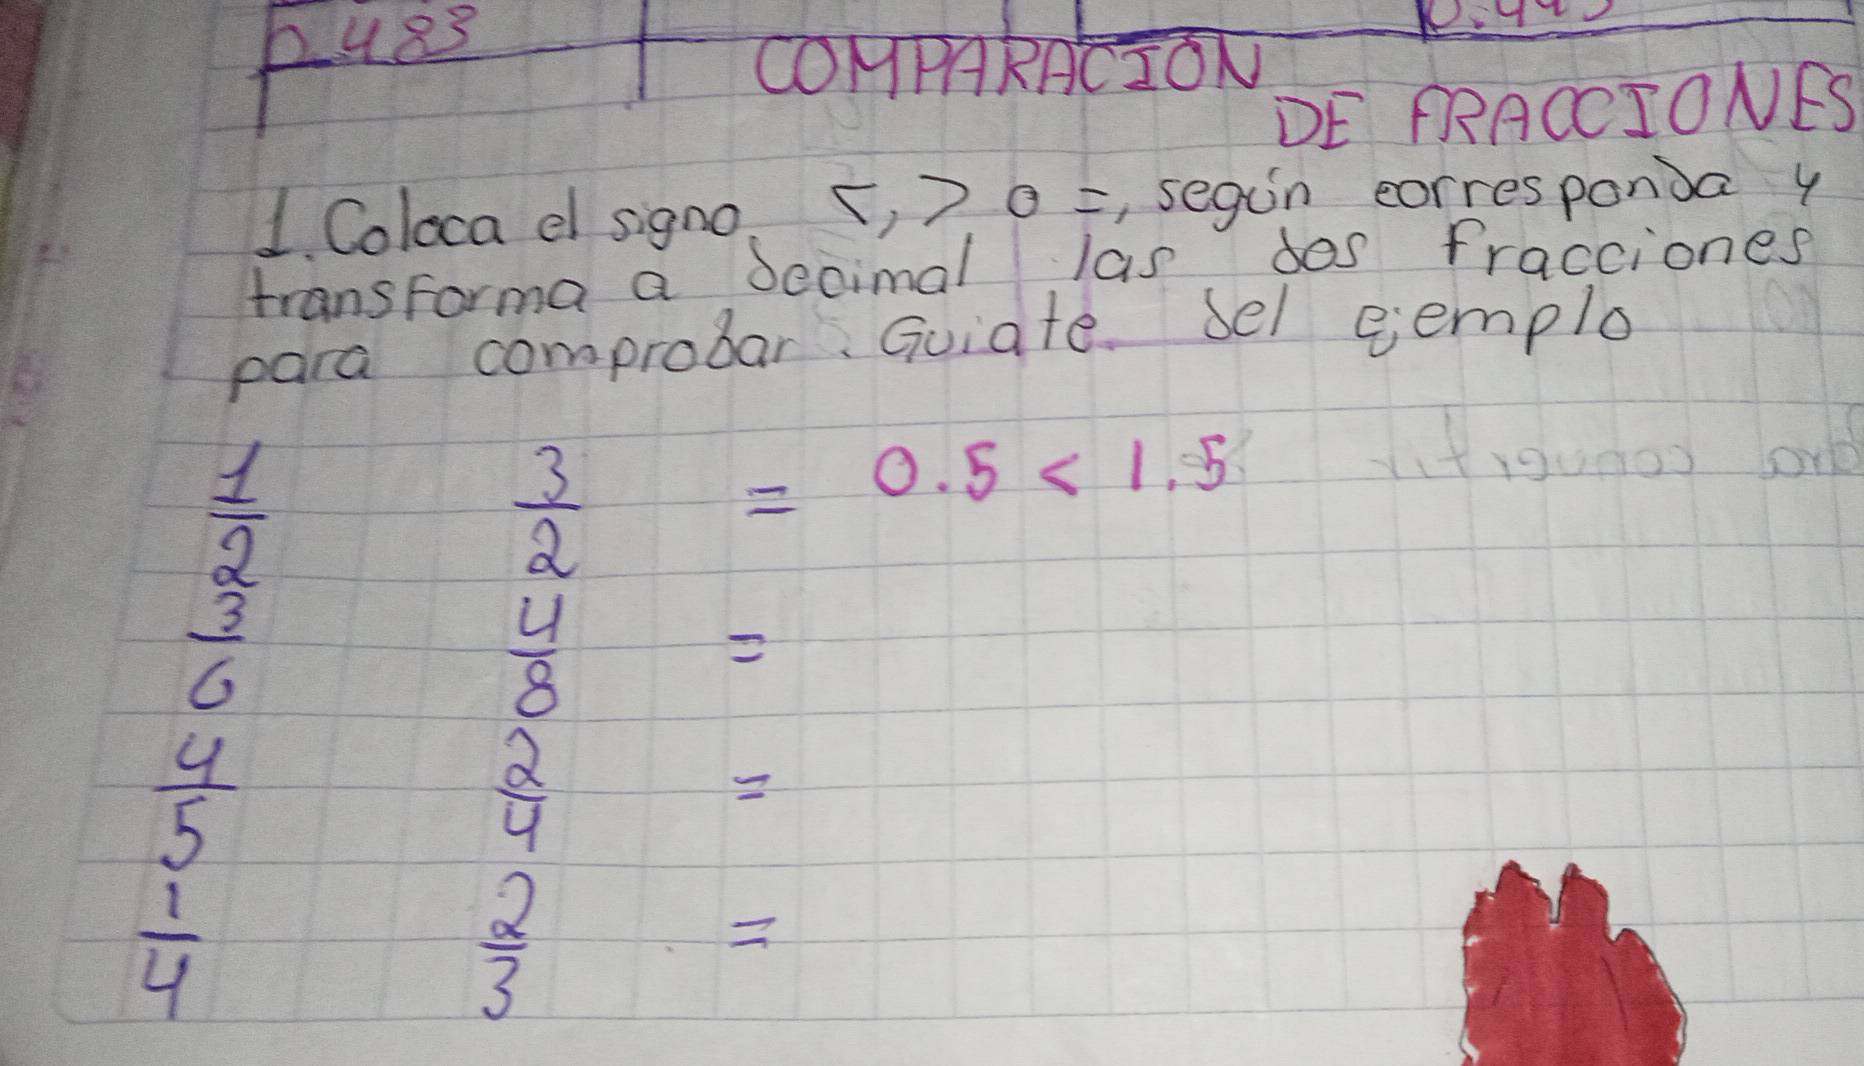 0.483
COMPARACION
DE FRACCIONES
1. Coloca el signo <, > o =, según corresponda y
transforma a decimal las dos fracciones
para comprobar. Guiate del ejemplo
1/2 3/2 = 0.5 < 1.5
3/6 4/8 =
4/5 2/4 =
1/4 2/3 =